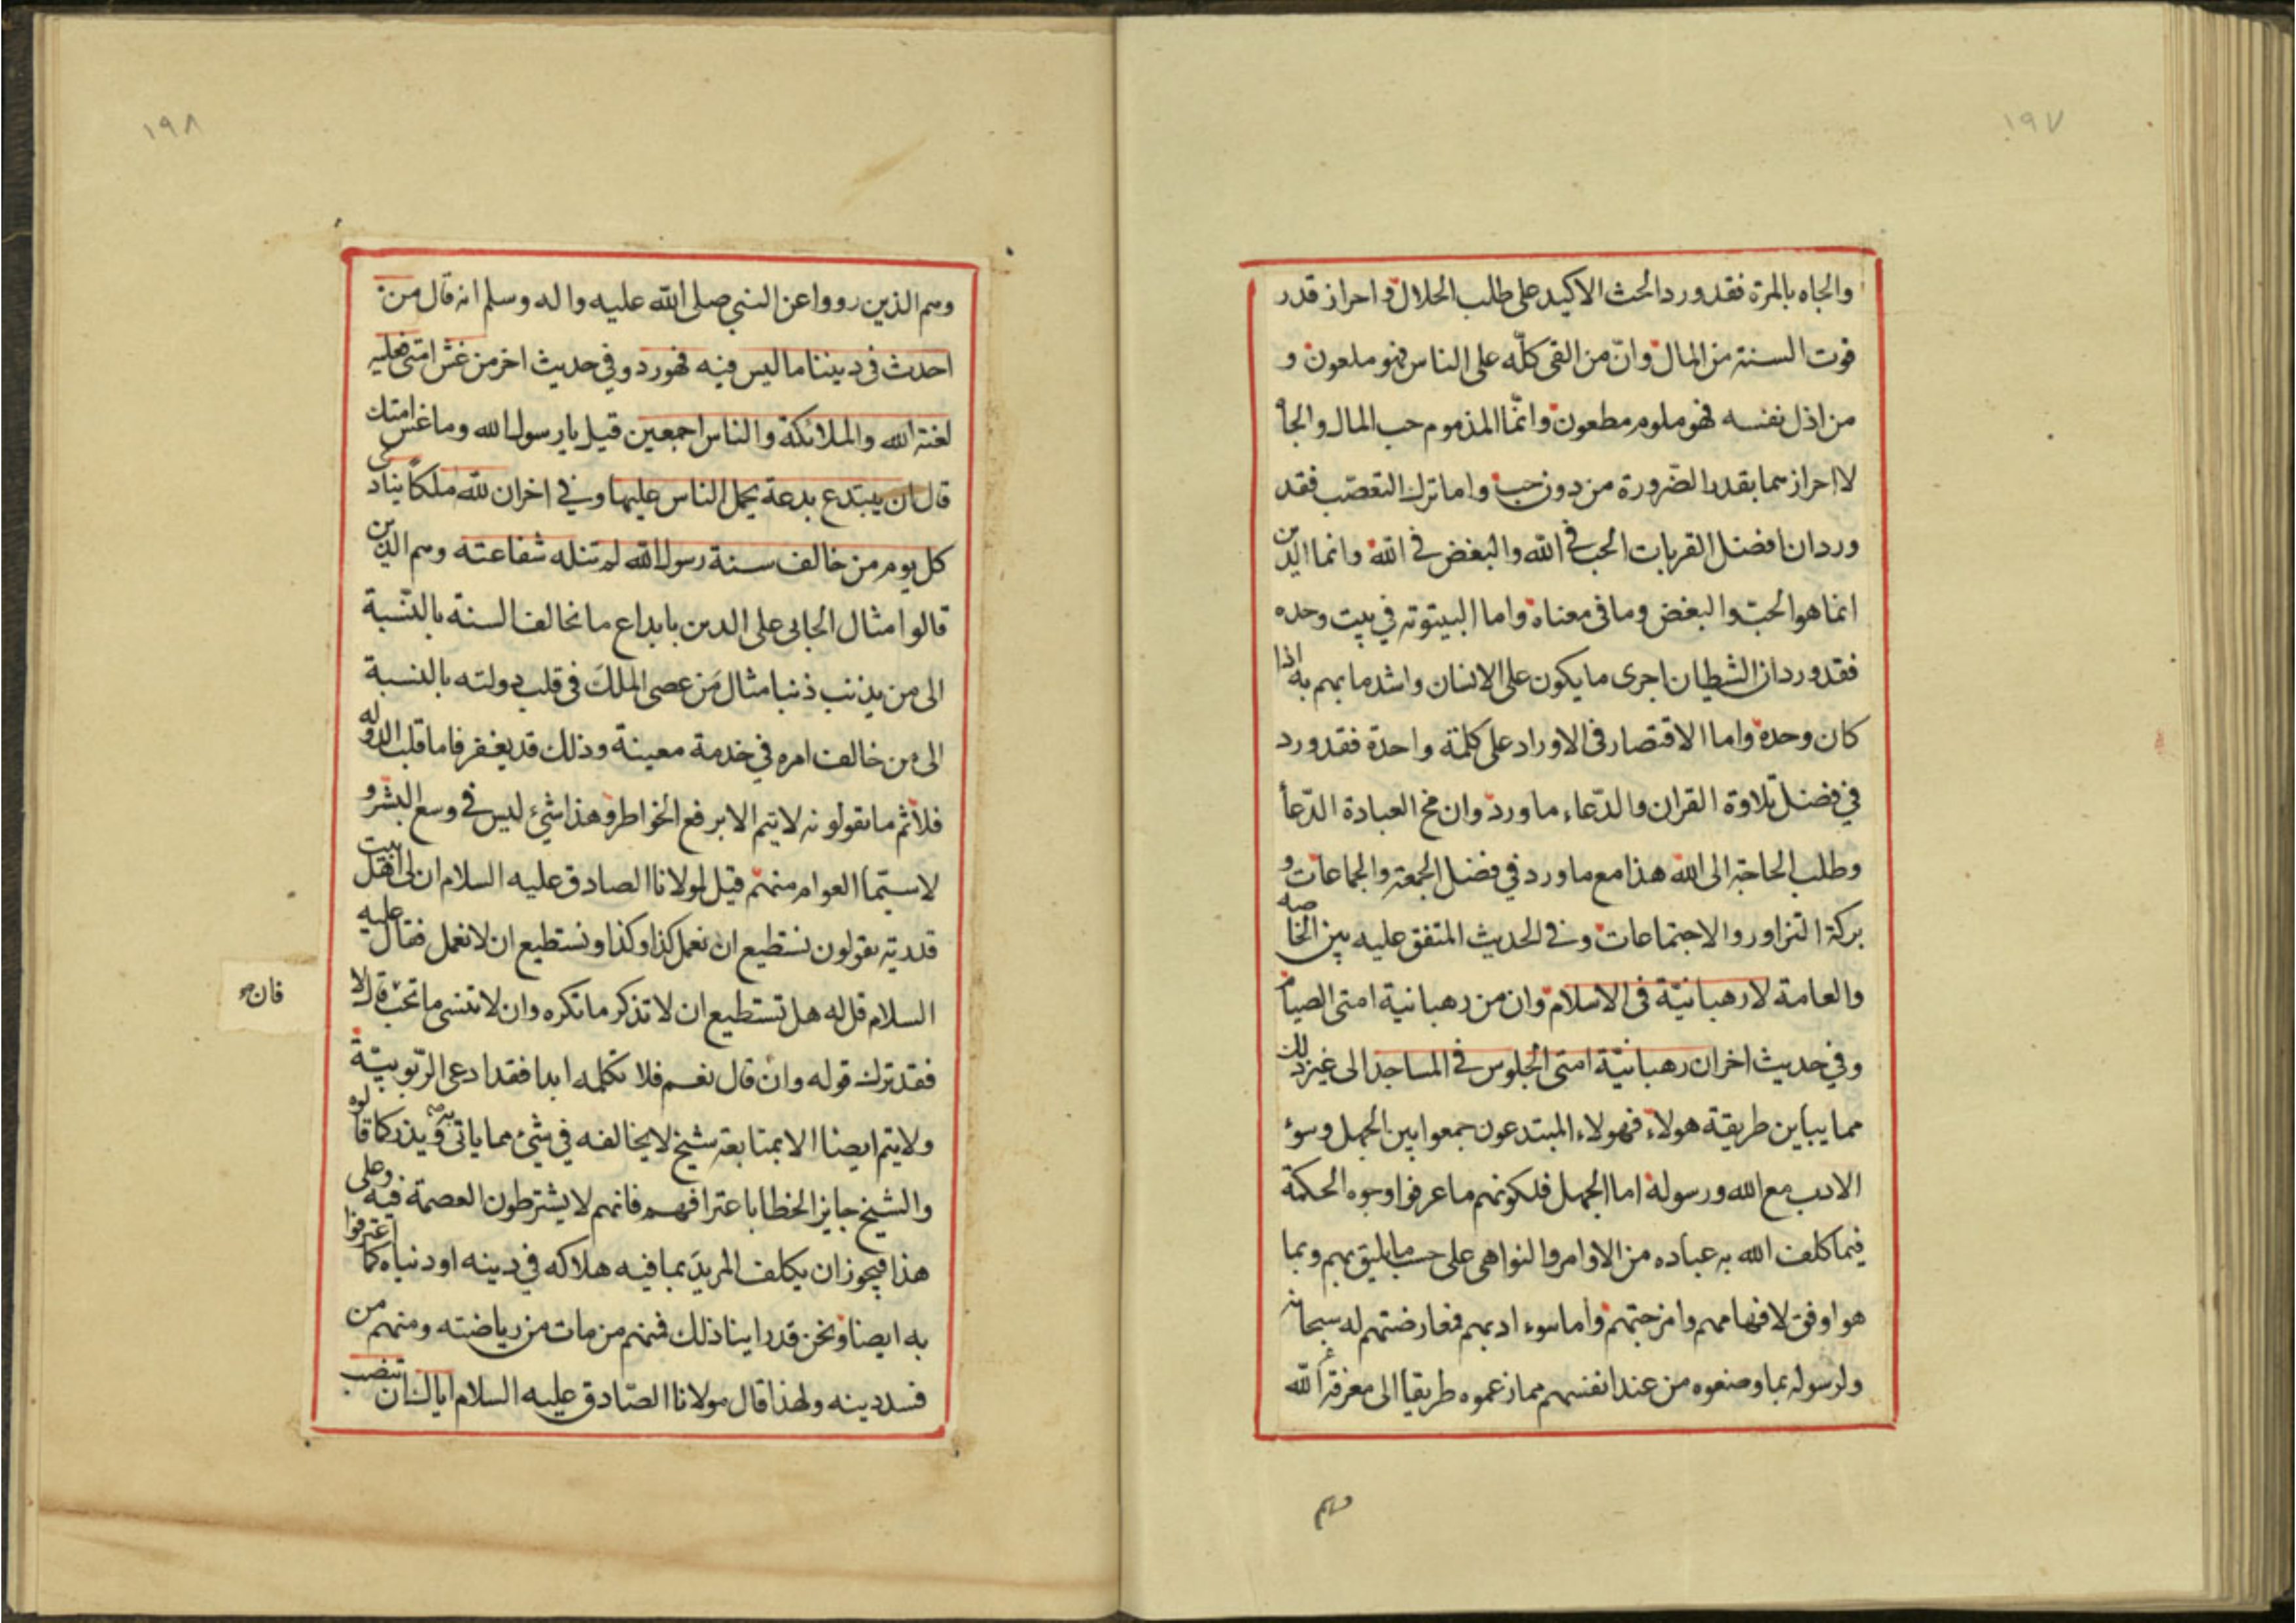 ١٩٧
والجاه بالمرة فقد ورد الحث الاكيد على طلب الحلال و احراز قدر
قوت السنة من المال وانّ من القى كلّه على الناس فهو ملعون و
من اذل نفسه فهو ملوم مطعون وانّما المذموم حب المال والجاه
لا احرازهما بقدر الضّرورة من دون حب واما ترك التعصّب فقد
ورد ان افضل القربات الحب فى الله والبغض فى الله وانما الدين
انما هو الحبّ والبغض وما فى معناه واما البيتوتة في بيت وحده
فقد ورد ان الشيطان اجرى ما يكون على الانسان واشد ما يهم به اذا
كان وحده واما الاقتصار فى الاوراد على كلمة واحدة فقد ورد
في فضل تلاوة القران والدّعاء ما ورد وان مخ العبادة الدّعا
وطلب الحاجة الى الله هذا مع ما ورد في فضل الجمعة والجماعات و
بركة التزاور والاجتماعات وفى الحديث المتفق عليه بين الخاصه
والعامة لا رهبانيّة فى الاسلام وان من رهبانية امتى الصيام
وفي حديث اخر ان رهبانيّة امتى الجلوس فى المساجد الى غير ذلك
مما يباين طريقة هولاء فهولاء المبتدعون جمعوا بين الجهل وسوء
الادب مع الله ورسوله اما الجهل فلكونهم ما عرفوا وجوه الحكمة
فيما كلف الله به عباده من الاوامر والنواهى على حسب ما يليق بهم وبما
هو اوفق لافهامهم وامزجتهم واما سوء ادبهم فمعارضتهم له سبحانه
ولرسوله بما وضعوه من عند انفسهم مما زعموه طريقا الى معرفة الله
وهم
١٩٨
وهم الذين رووا عن النبي صلى الله عليه واله وسلم انه قال من
احدث فى ديننا ما ليس فيه فهو رد وفي حديث اخر من غش امتى فعليه
لعنة الله والملائكة والناس اجمعين قيل يا رسول الله وما غش امتك
قال ان يبتدع بدعة يحمل الناس عليها وفي اخر ان لله ملكاً ينادى
كل يوم من خالف سنة رسول الله لم تنله شفاعته وهم الذين
قالوا مثال الجاني على الدين بابداع ما يخالف السنة بالنّسبة
الى من يذنب ذنبا مثال مَن عصى الملكَ فى قلب دولته بالنسبة
الى من خالف امره في خدمة معينة وذلك قد يغفر فاما قلب الدوله
فلا ثم ما يقولونه لا يتم الا برفع الخواطر وهذا شئ ليس فى وسع البشر و
لا سيّما العوام منهم قيل لمولانا الصادق عليه السلام ان لى اهل بيت
قدرية يقولون نستطيع ان نعمل كذا وكذا ونستطيع ان لا نعمل فقال عليه
السلام قل له هل تستطيع ان لا تذكر ما تكره وان لا تنسى ما تحب فان قال لا
فقد ترك قوله وان قال نعم فلا تكلمه ابدا فقد ادعى الرّبوبيّة
ولا يتم ايضا الا بمتابعة شيخ لا يخالفه في شئ مما ياتى به ويذر كما قالوه
والشيخ جايز الخطا باعترافهم فانهم لا يشترطون العصمة فيه وعلى
هذا فيجوز ان يكلف المريدَ بما فيه هلاكه في دينه او دنياه كما اعترفوا
به ايضا ونحن قد راينا ذلك فمنهم من مات من رياضته ومنهم من
فسد دينه ولهذا قال مولانا الصّادق عليه السلام اياك ان تنصب
فان